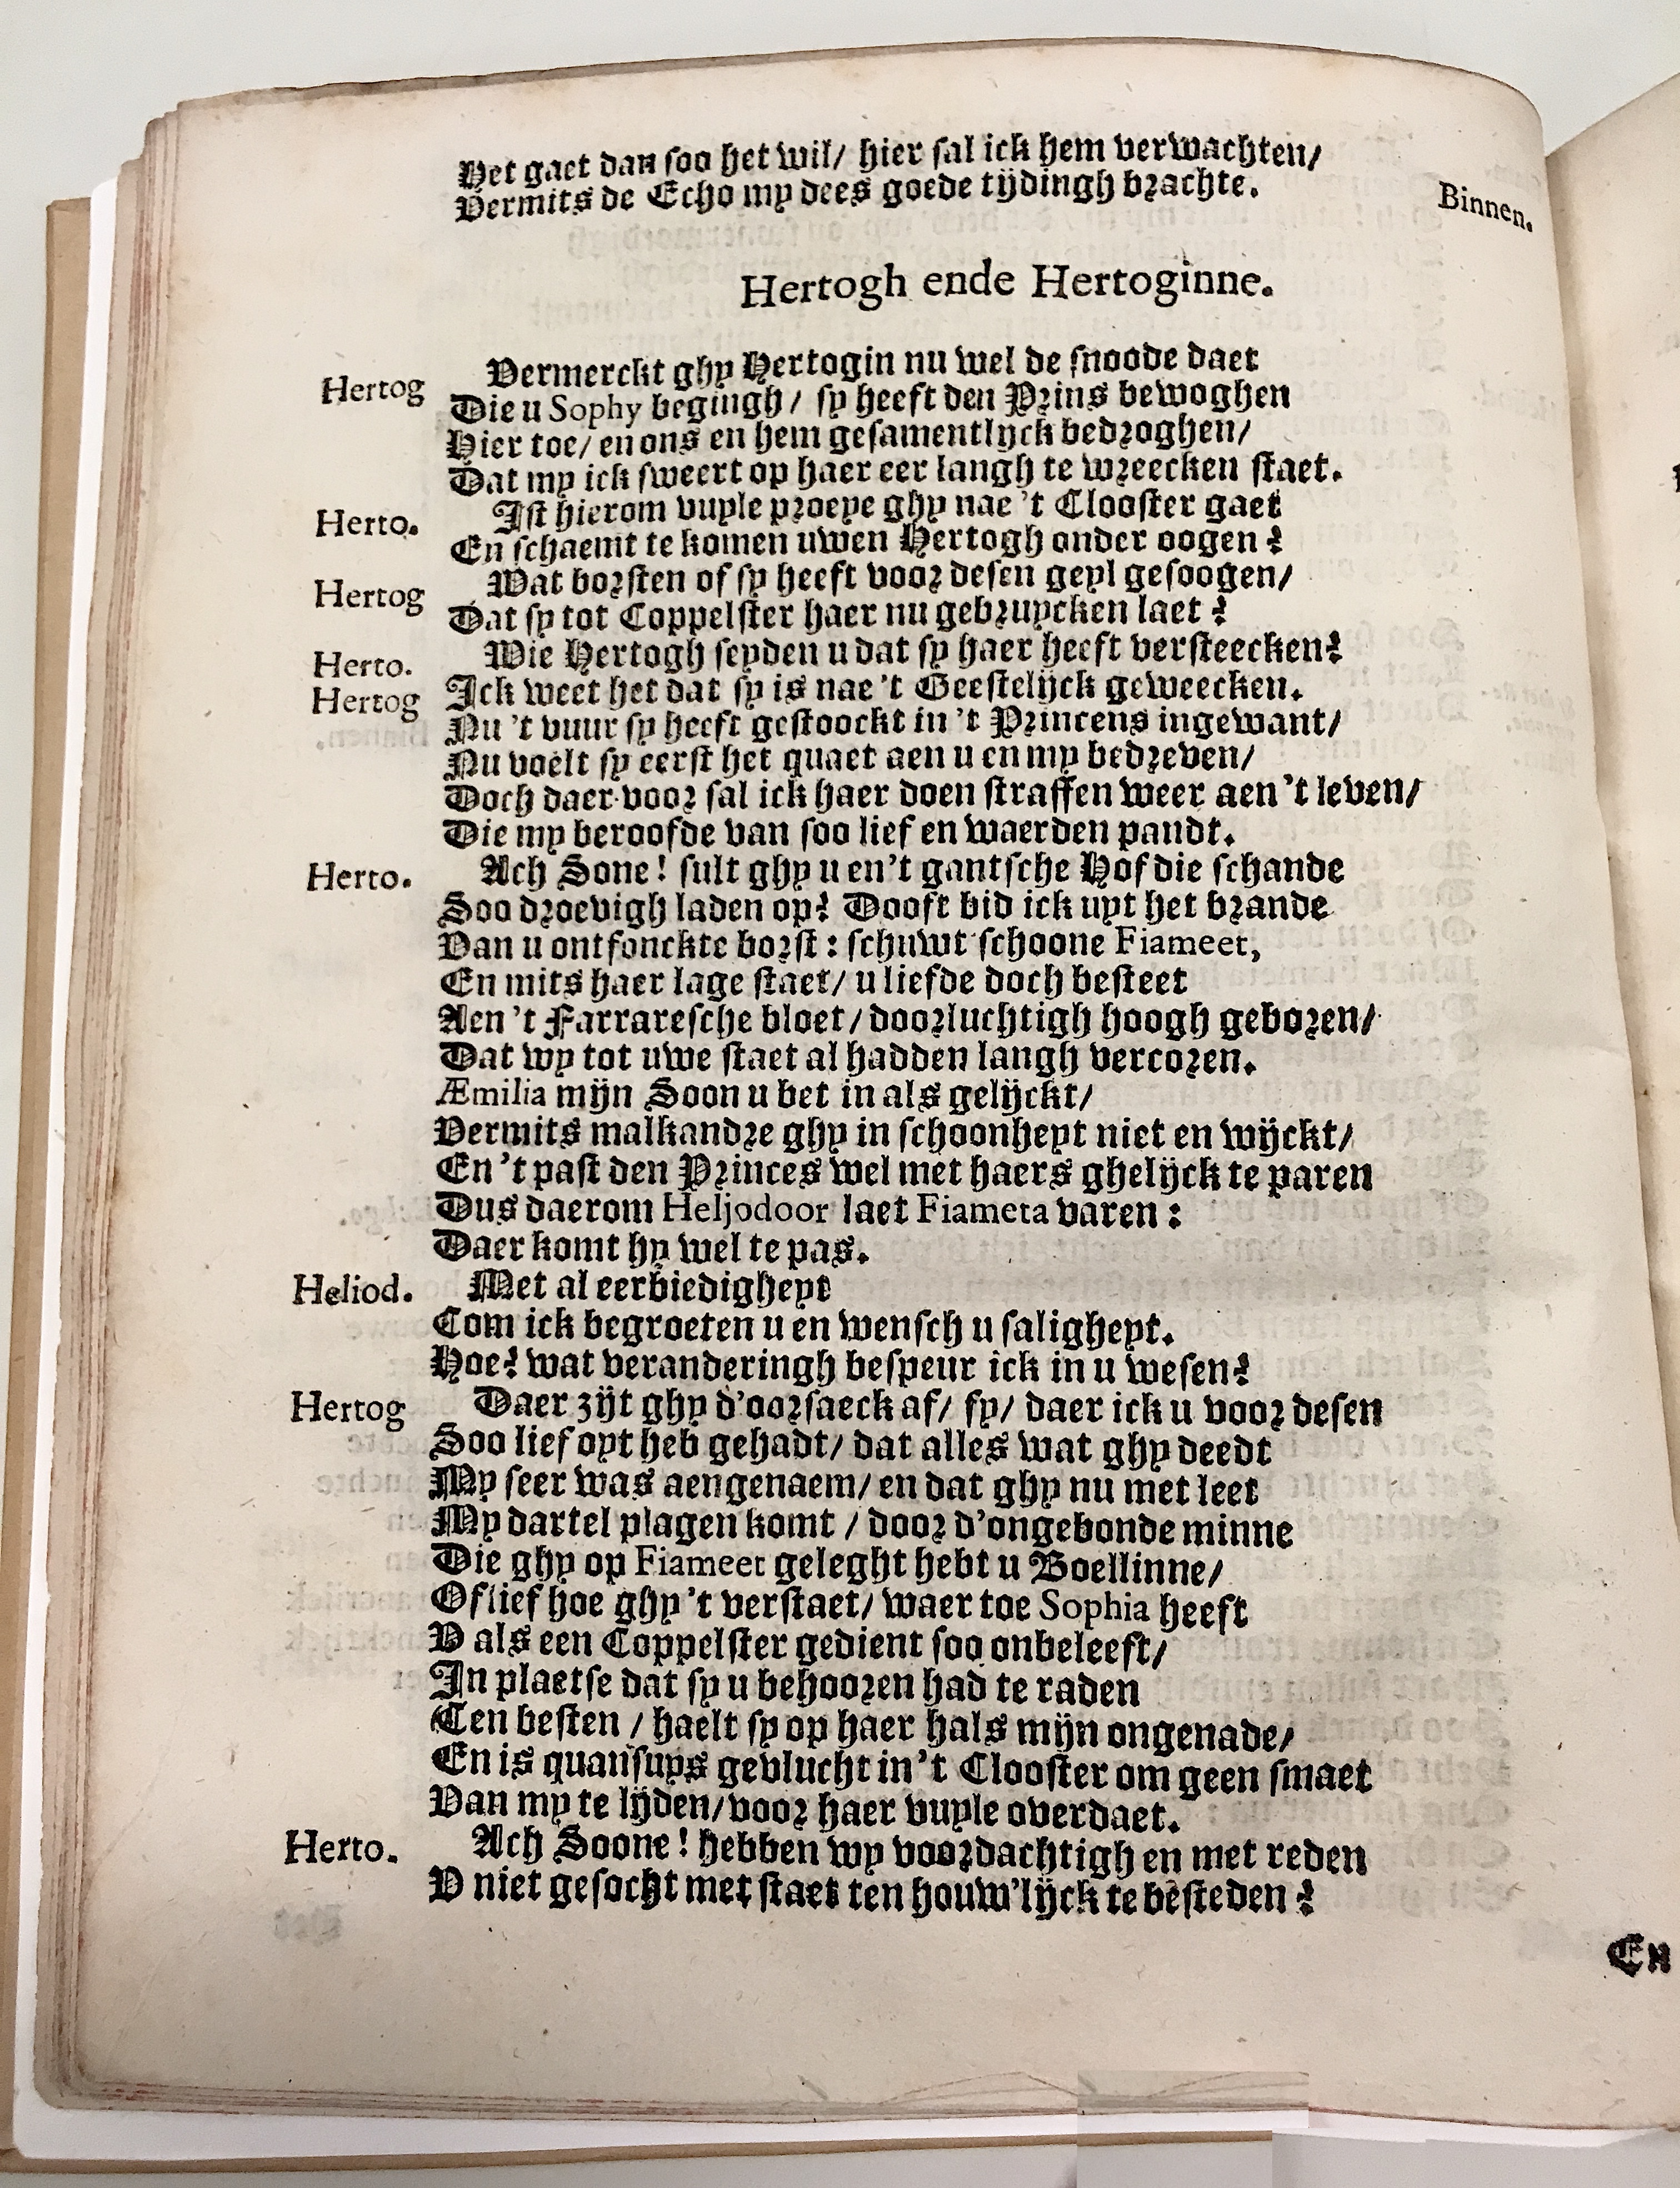 Het gaet dan soo het wil/ hier sal ick hem verwachten/
Vermits de Echo my dees goede tijdingh brachte.
Binnen.
Hertogh ende Hertoginne.
Hertog Vermerckt ghy Hertogin nu wel de snoode daet
Die u Sophy begingh/ sy heeft den Prins bewoghen
Hier toe/ en ons en hem gesamentlijck bedroghen/
Dat my ick sweert op haer eer langh te wreecken staet.
Herto. Ist hierom vuyle proeye ghy nae 't Clooster gaet
En schaemt te komen uwen Hertogh onder oogen?
Hertog Wat borsten of sy heeft voor desen geyl gesoogen/
Dat sy tot Coppelster haer nu gebruycken laet?
Herto. Wie Hertogh seyden u dat sy haer heeft versteecken?
Hertog Ick weet het dat sy is nae 't Geestelijck geweecken.
Nu 't vuur sy heeft gestoockt in 't Princens ingewant/
Nu voelt sy eerst het quaet aen u en my bedreven/
Doch daer voor sal ick haer doen straffen weer aen 't leven/
Die my beroofde van soo lief en waerden pandt.
Herto. Ach Sone! sult ghy u en 't gantsche Hof die schande
Soo droevigh laden op? Dooft bid ick uyt het brande
Van u ontfonckte borst: schuwt schoone Fiameet,
En mits haer lage staet/ u liefde doch besteet
Aen 't Farraresche bloet/ doorluchtigh hoogh geboren/
Dat wy tot uwe staet al hadden langh vercoren.
Æmilia mijn Soon u bet in als gelijckt/
Vermits malkandre ghy in schoonheyt niet en wijckt/
En 't past den Princes wel met haers ghelijck te paren
Dus daerom Heljodoor laet Fiameta varen:
Daer komt hy wel te pas.
Heliod. Met al eerbiedigheyt
Com ick begroeten u en wensch u saligheyt.
Hoe? wat veranderingh bespeur ick in u wesen?
Hertog Daer zijt ghy d'oorsaeck af/ fy/ daer ick u voor desen
Soo lief oyt heb gehadt/ dat alles wat ghy deedt
My seer was aengenaem/ en dat ghy nu met leet
My dartel plagen komt / door d'ongebonde minne
Die ghy op Fiameet geleght hebt u Boellinne/
Of lief hoe ghy 't verstaet/ waer toe Sophia heeft
V als een Coppelster gedient soo onbeleeft/
In plaetse dat sy u behooren had te raden
Ten besten / haelt sy op haer hals mijn ongenade/
En is quansuys gevlucht in 't Clooster om geen smaet
Van my te lijden/ voor haer vuyle overdaet.
Herto. Ach Soone! hebben wy voordachtigh en met reden
V niet gesocht met staet ten houw'lijck te besteden?
En